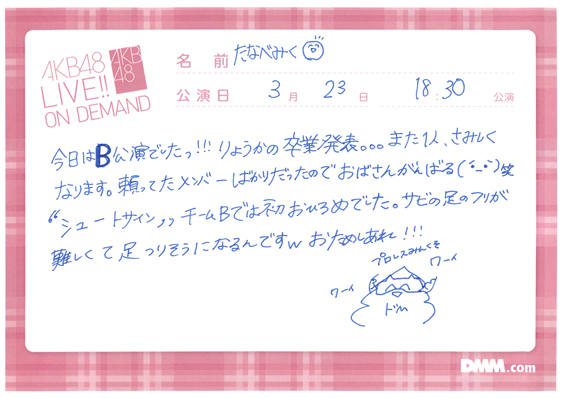 AKB48
LIVE!!
ON DEMAND
AKB
48
名前 たなべみく
公演日 3月 23日 18:30 公演
今日はB公演でしたっ!!! りょうかの卒業発表。。。また1人、さみしく
なります。頼ってたメンバーばかりだったのでおばさんがんばる(´-_-`)笑
“シュートサイン„ チームBでは初おひろめでした。サビの足のフリが
難しくて足つりそうになるんですw おためしあれ!!!
プロレスみんくそ
ワーイ
ワーイ
ドM
DMM.com